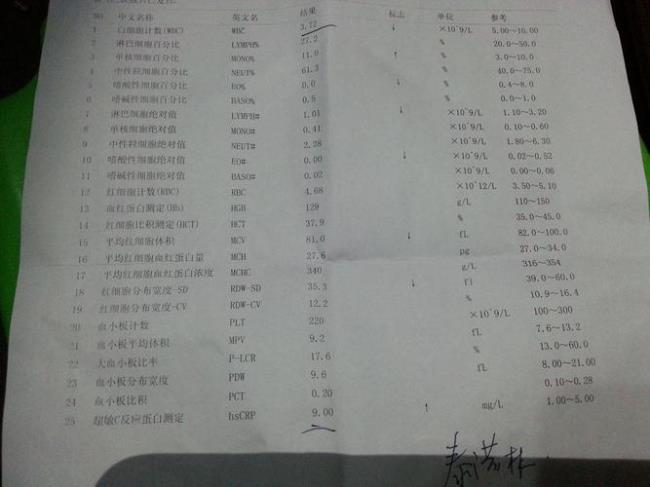 NO 中文名称 英文名 结果 标志 单位 参考
1 白细胞计数(WBC) WBC 3.72 ↓ ×10^9/L 5.00~10.00
2 淋巴细胞百分比 LYMPH% 27.2 % 20.0~50.0
3 单核细胞百分比 MONO% 11.0 ↑ % 3.0~10.0
4 中性粒细胞百分比 NEUT% 61.3 % 40.0~75.0
5 嗜酸性细胞百分比 EO% 0.0 ↓ % 0.4~8.0
6 嗜碱性细胞百分比 BASO% 0.5 % 0.0~1.0
7 淋巴细胞绝对值 LYMPH# 1.01 ↓ ×10^9/L 1.10~3.20
8 单核细胞绝对值 MONO# 0.41 ×10^9/L 0.10~0.60
9 中性粒细胞绝对值 NEUT# 2.28 ×10^9/L 1.80~6.30
10 嗜酸性细胞绝对值 EO# 0.00 ↓ ×10^9/L 0.02~0.52
11 嗜碱性细胞绝对值 BASO# 0.02 ×10^9/L 0.00~0.06
12 红细胞计数(RBC) RBC 4.68 ×10^12/L 3.50~5.10
13 血红蛋白测定(Hb) HGB 129 g/L 110~150
14 红细胞比积测定(HCT) HCT 37.9 % 35.0~45.0
15 平均红细胞体积 MCV 81.0 ↓ fL 82.0~100.0
16 平均红细胞血红蛋白量 MCH 27.6 pg 27.0~34.0
17 平均红细胞血红蛋白浓度 MCHC 340 g/L 316~354
18 红细胞分布宽度-SD RDW-SD 35.3 ↓ fl 39.0~60.0
19 红细胞分布宽度-CV RDW-CV 12.2 % 10.9~16.4
20 血小板计数 PLT 220 ×10^9/L 100~300
21 血小板平均体积 MPV 9.2 fL 7.6~13.2
22 大血小板比率 P-LCR 17.6 % 13.0~60.0
23 血小板分布宽度 PDW 9.6 fL 8.00~21.00
24 血小板比积 PCT 0.20 0.10~0.28
25 超敏C反应蛋白测定 hsCRP 9.00 ↑ mg/L 1.00~5.00